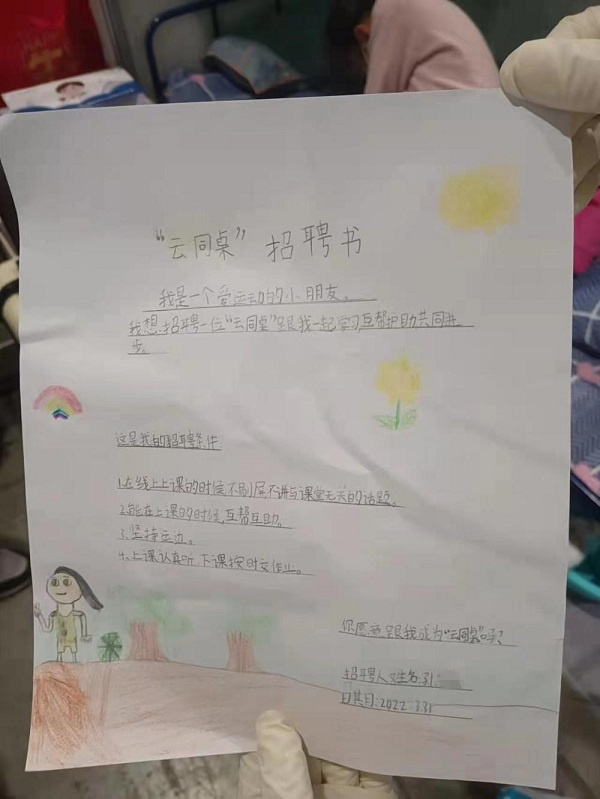 “云同桌”招聘书
我是一个爱运动的小朋友。
我想招聘一位“云同桌”跟我一起学习互帮护助共同进
步。
这是我的招聘条件
1.在线上上课的时候不刷屏不讲与课堂无关的话题。
2.能在上课的时候,互帮互助。
3.坚持运动。
4.上课认真听,下课按时交作业。
你愿意跟我成为“云同桌”吗?
招聘人姓名:孔
日期:2022.3.31